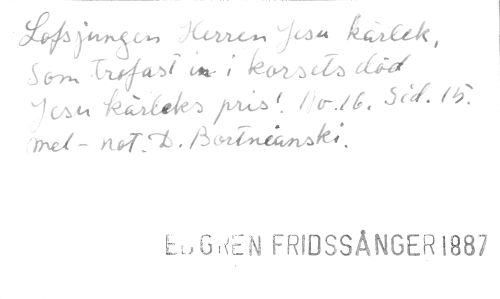 Lofsjungen Herren Jesu kärlek,
Som trofast in i korsets död
Jesu kärleks pris! No. 16. Sid. 15.
mel-not. D. Bortnianski.
FRIDSSÅNGER 1887